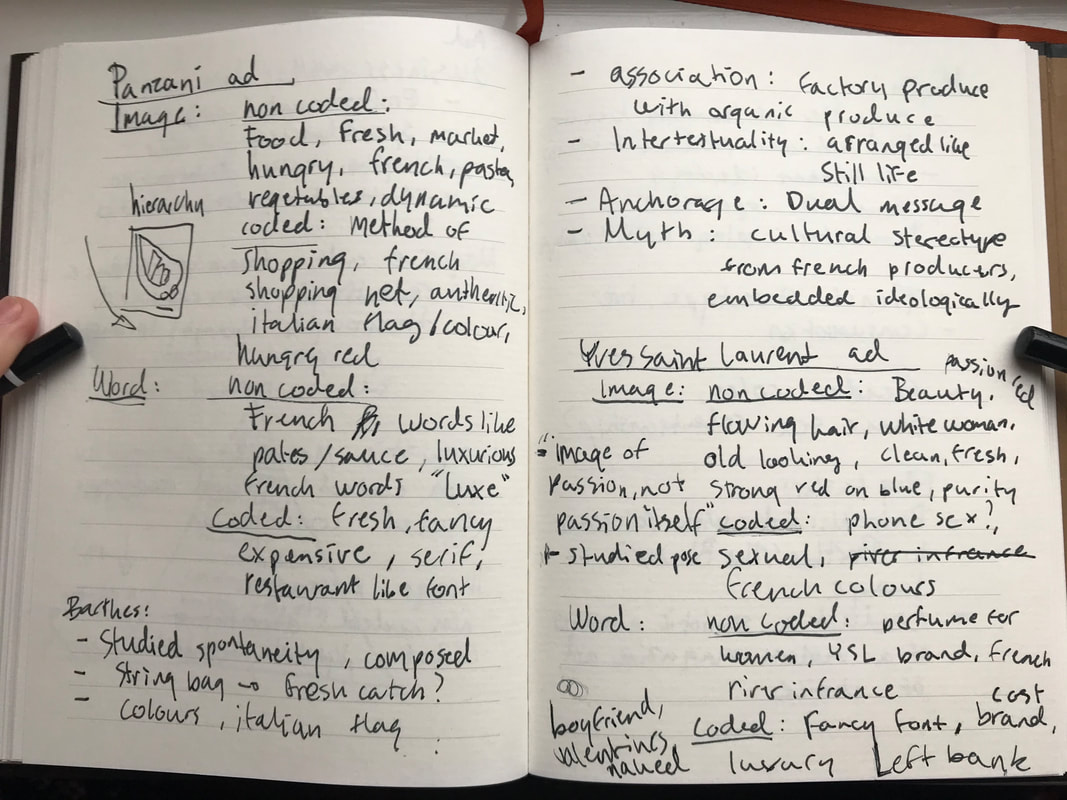 Panzani ad
Image: non coded:
Food, Fresh, market,
hungry, french, pasta,
vegetables, dynamic
hierarchy
coded: Method of
shopping, french
shopping net, authentic,
italian flag/colour,
hungry red
Word: non coded:
French words like
pates/sauce, luxurious
french words "Luxe"
Coded: Fresh, fancy
expensive, serif,
restaurant like font
Barthes:
- Studied spontaneity, composed
- String bag → fresh catch?
- colours, italian flag
- association: Factory produce
with organic produce
- Intertextuality: arranged like
Still life
- Anchorage: Dual message
- Myth: cultural stereotype
from french producers,
embedded ideologically
Yves Saint Laurent ad
passion red
Image: non coded: Beauty,
flowing hair, white woman,
old looking, clean, fresh,
strong red on blue, purity
"image of
passion, not
passion itself"
+ studied pose
coded: phone sex?,
sexual, river infrance
french colours
Word: non coded: perfume for
women, YSL brand, french
river infrance
boyfriend,
valentines
named
coded: Fancy font, cost
brand,
luxury Left bank